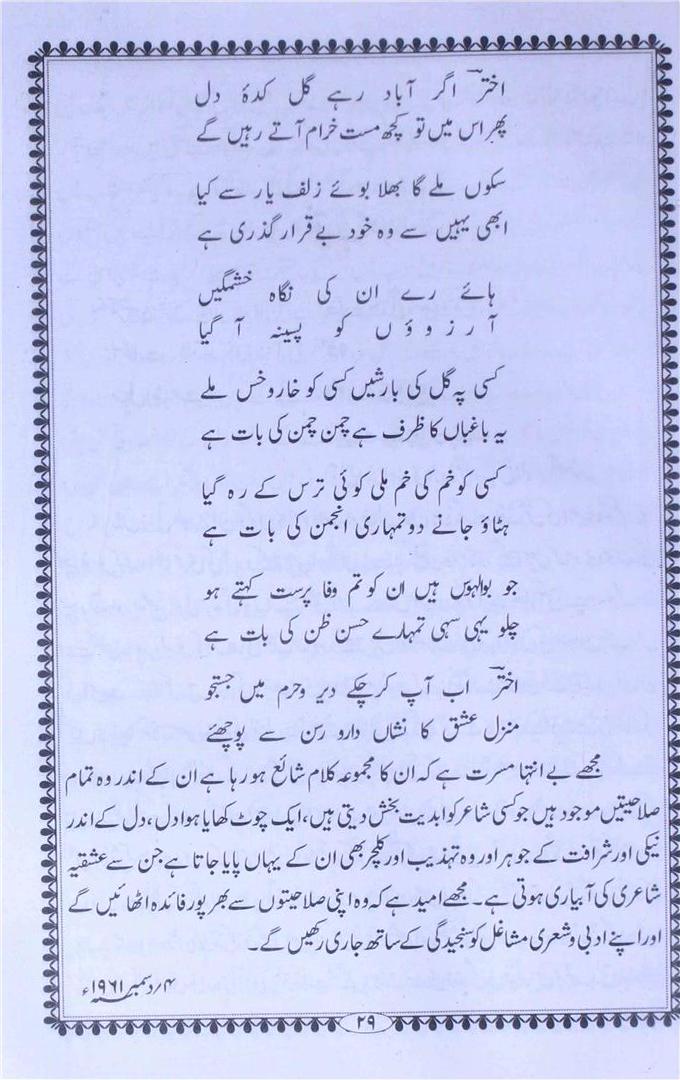 اخترؔ اگر آباد رہے گل کدۂ دل
پھر اس میں تو کچھ مست خرام آتے رہیں گے
سکوں ملے گا بھلا بوئے زلف یار سے کیا
ابھی یہیں سے وہ خود بے قرار گذری ہے
ہائے رے ان کی نگاہ خشمگیں
آرزوؤں کو پسینہ آگیا
کسی پہ گل کی بارشیں کسی کو خار و خس ملے
یہ باغباں کا ظرف ہے چمن چمن کی بات ہے
کسی کو خم کی خم ملی کوئی ترس کے رہ گیا
ہٹاؤ جانے دو تمہاری انجمن کی بات ہے
جو بوالہوس ہیں ان کو تم وفا پرست کہتے ہو
چلو یہی سہی تمہارے حسن ظن کی بات ہے
اخترؔ اب آپ کرچکے دیر و حرم میں جستجو
منزل عشق کا نشاں دار و رسن سے پوچھئے
مجھے بے انتہا مسرت ہے کہ ان کا مجموعہ کلام شائع ہو رہا ہے ان کے اندر وہ تمام
صلاحیتیں موجود ہیں جو کسی شاعر کو ابدیت بخش دیتی ہیں، ایک چوٹ کھایا ہوا دل، دل کے اندر
نیکی اور شرافت کے جوہر اور وہ تہذیب اور کلچر بھی ان کے یہاں پایا جاتا ہے جن سے عشقیہ
شاعری کی آبیاری ہوتی ہے۔ مجھے امید ہے کہ وہ اپنی صلاحیتوں سے بھرپور فائدہ اٹھائیں گے
اور اپنے ادبی و شعری مشاغل کو سنجیدگی کے ساتھ جاری رکھیں گے۔
۴؍دسمبر ۱۹۶۱ء
۲۹